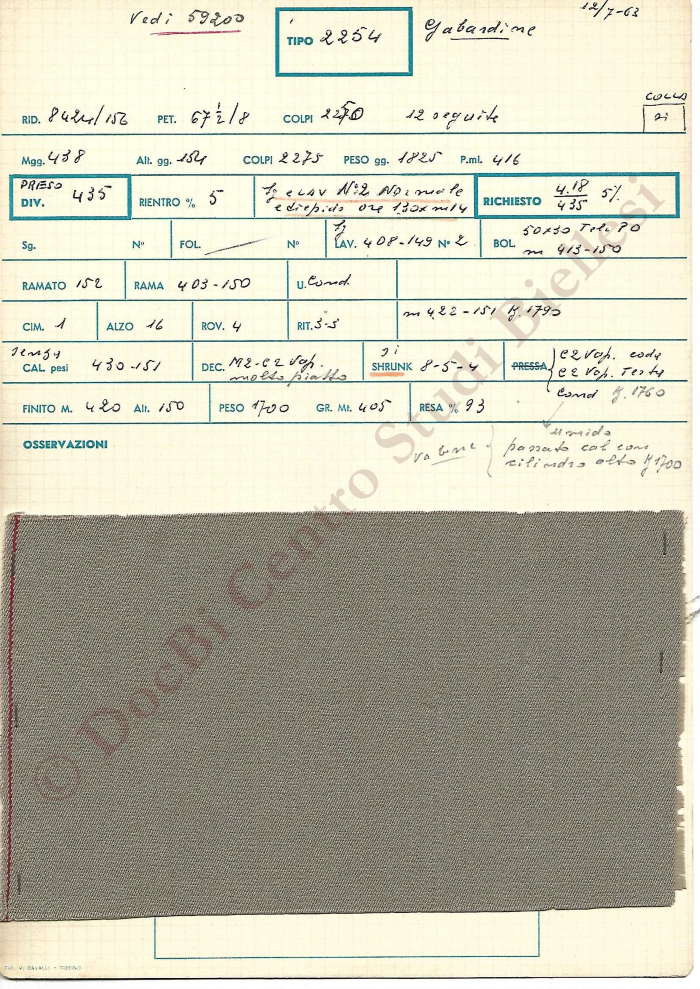 Vedi 59200 TIPO 2254 Gabardine 12/7-63
COLLO
RID. 8424/156 PET. 67 1/2/8 COLPI 2250 12 seguite si
Mgg. 438 Alt. gg. 154 COLPI 2275 PESO gg. 1825 P.ml. 416
PRESO
DIV. 435 RIENTRO % 5 N:2 Normale RICHIESTO 4.18/435 5%
ore 1.30
Sg. N° FOL. N° LAV. 408-149 N° 2 BOL 50x30
m 413-150
RAMATO 152 RAMA 403-150 U. Cond.
CIM. 1 ALZO 16 ROV. 4 RIT. 3-3 m 422-151 K. 1790
senza
CAL. pesi 430-151 DEC. M2-C2 Vap. si SHRUNK 8-5-4 PRESSA C2 Vap. coda
molto piatto C2 Vap. Testa
Cond K. 1760
FINITO M. 420 Alt. 150 PESO 1700 GR. Mt. 405 RESA % 93
OSSERVAZIONI
umido
va bene passato cal con
cilindro alto K 1700
© DocBi Centro Studi Biellesi
TIP. VI. CAVALLI • TORINO